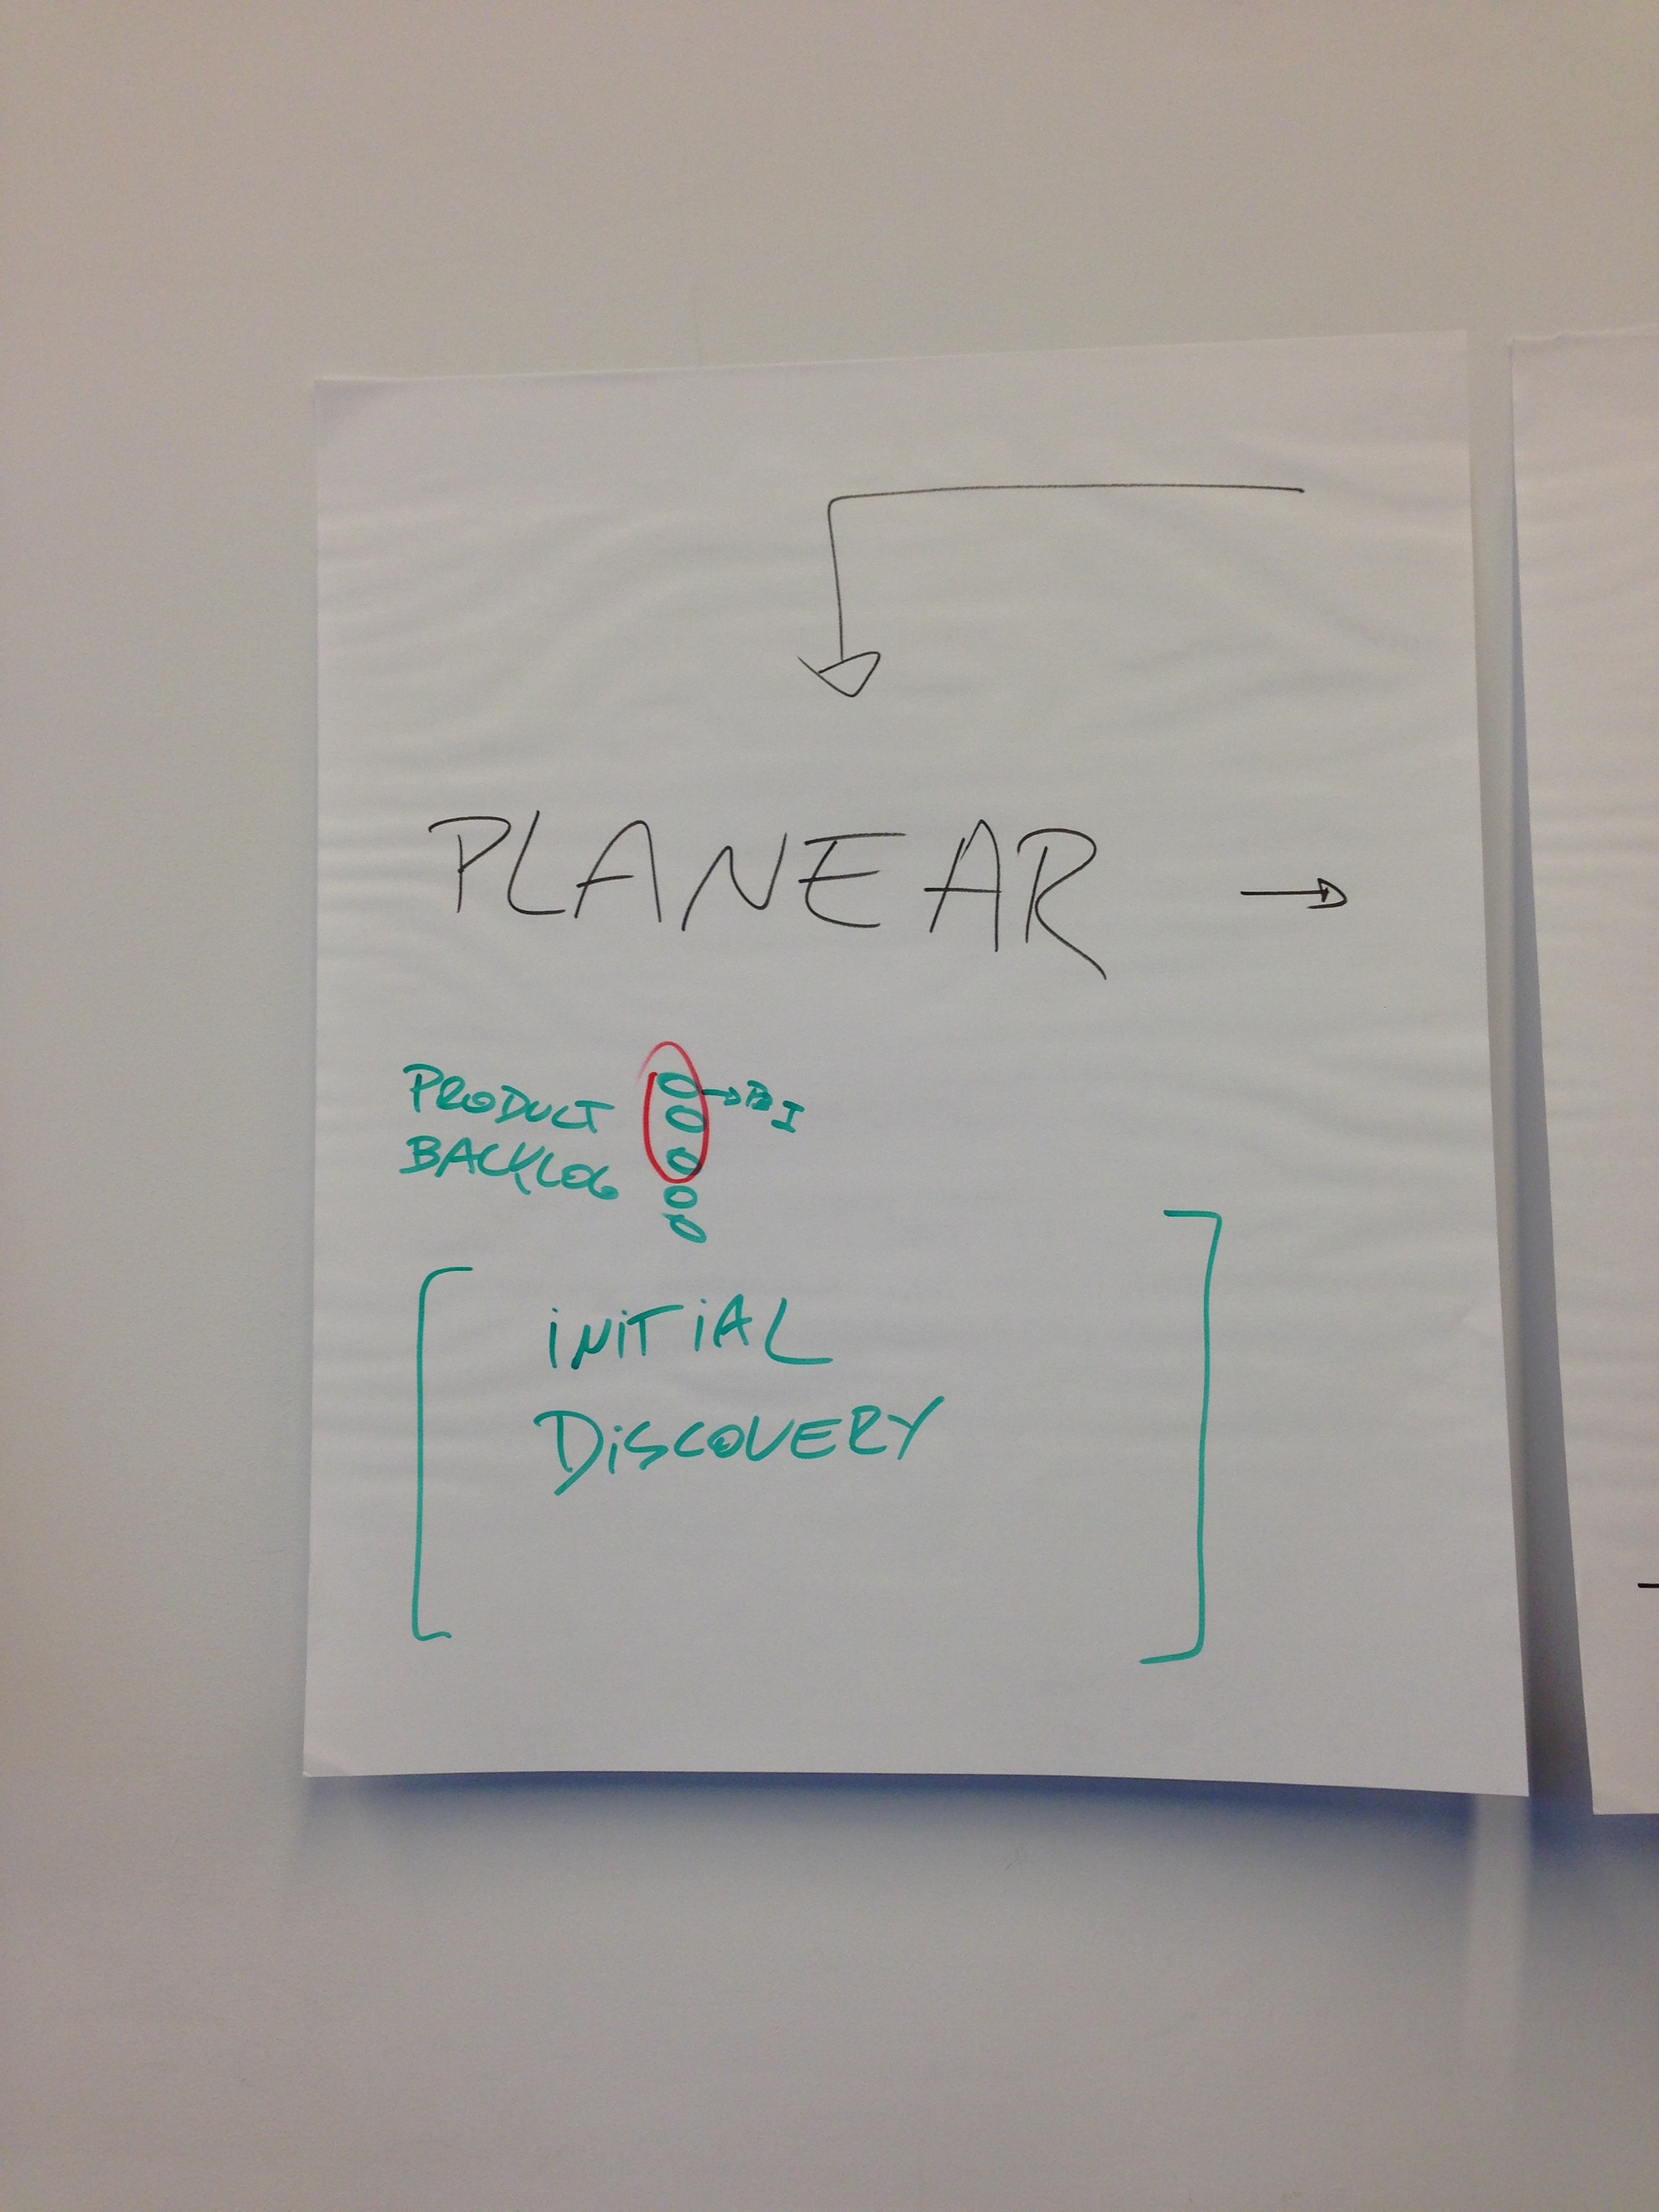 PLANEAR
PRODUCT
BACKLOG
INITIAL
DISCOVERY